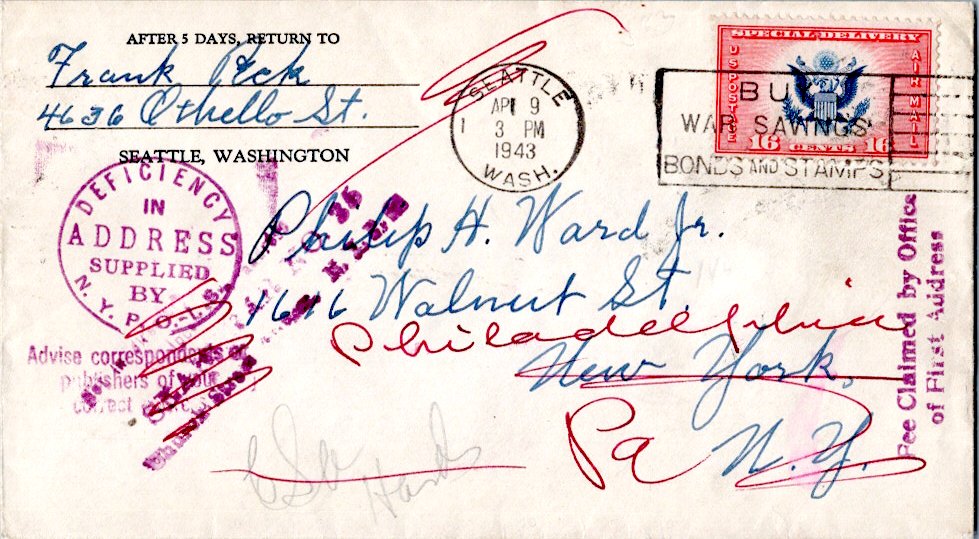 AFTER 5 DAYS, RETURN TO
Frank Peck
4636 Othello St.
SEATTLE, WASHINGTON
SEATTLE
APR 9
3 PM
1943
WASH.
1
BUY
WAR SAVINGS
BONDS AND STAMPS
SPECIAL DELIVERY
US POSTAGE
AIR MAIL
16 CENTS 16
DEFICIENCY
IN
ADDRESS
SUPPLIED
BY
N. Y. P. O.-I. S.
Philip H. Ward Jr.
1616 Walnut St.
Philadelphia
New York,
Pa N. Y.
Advise correspondents or
publishers of your
correct address
Fee Claimed by Office
of First Address